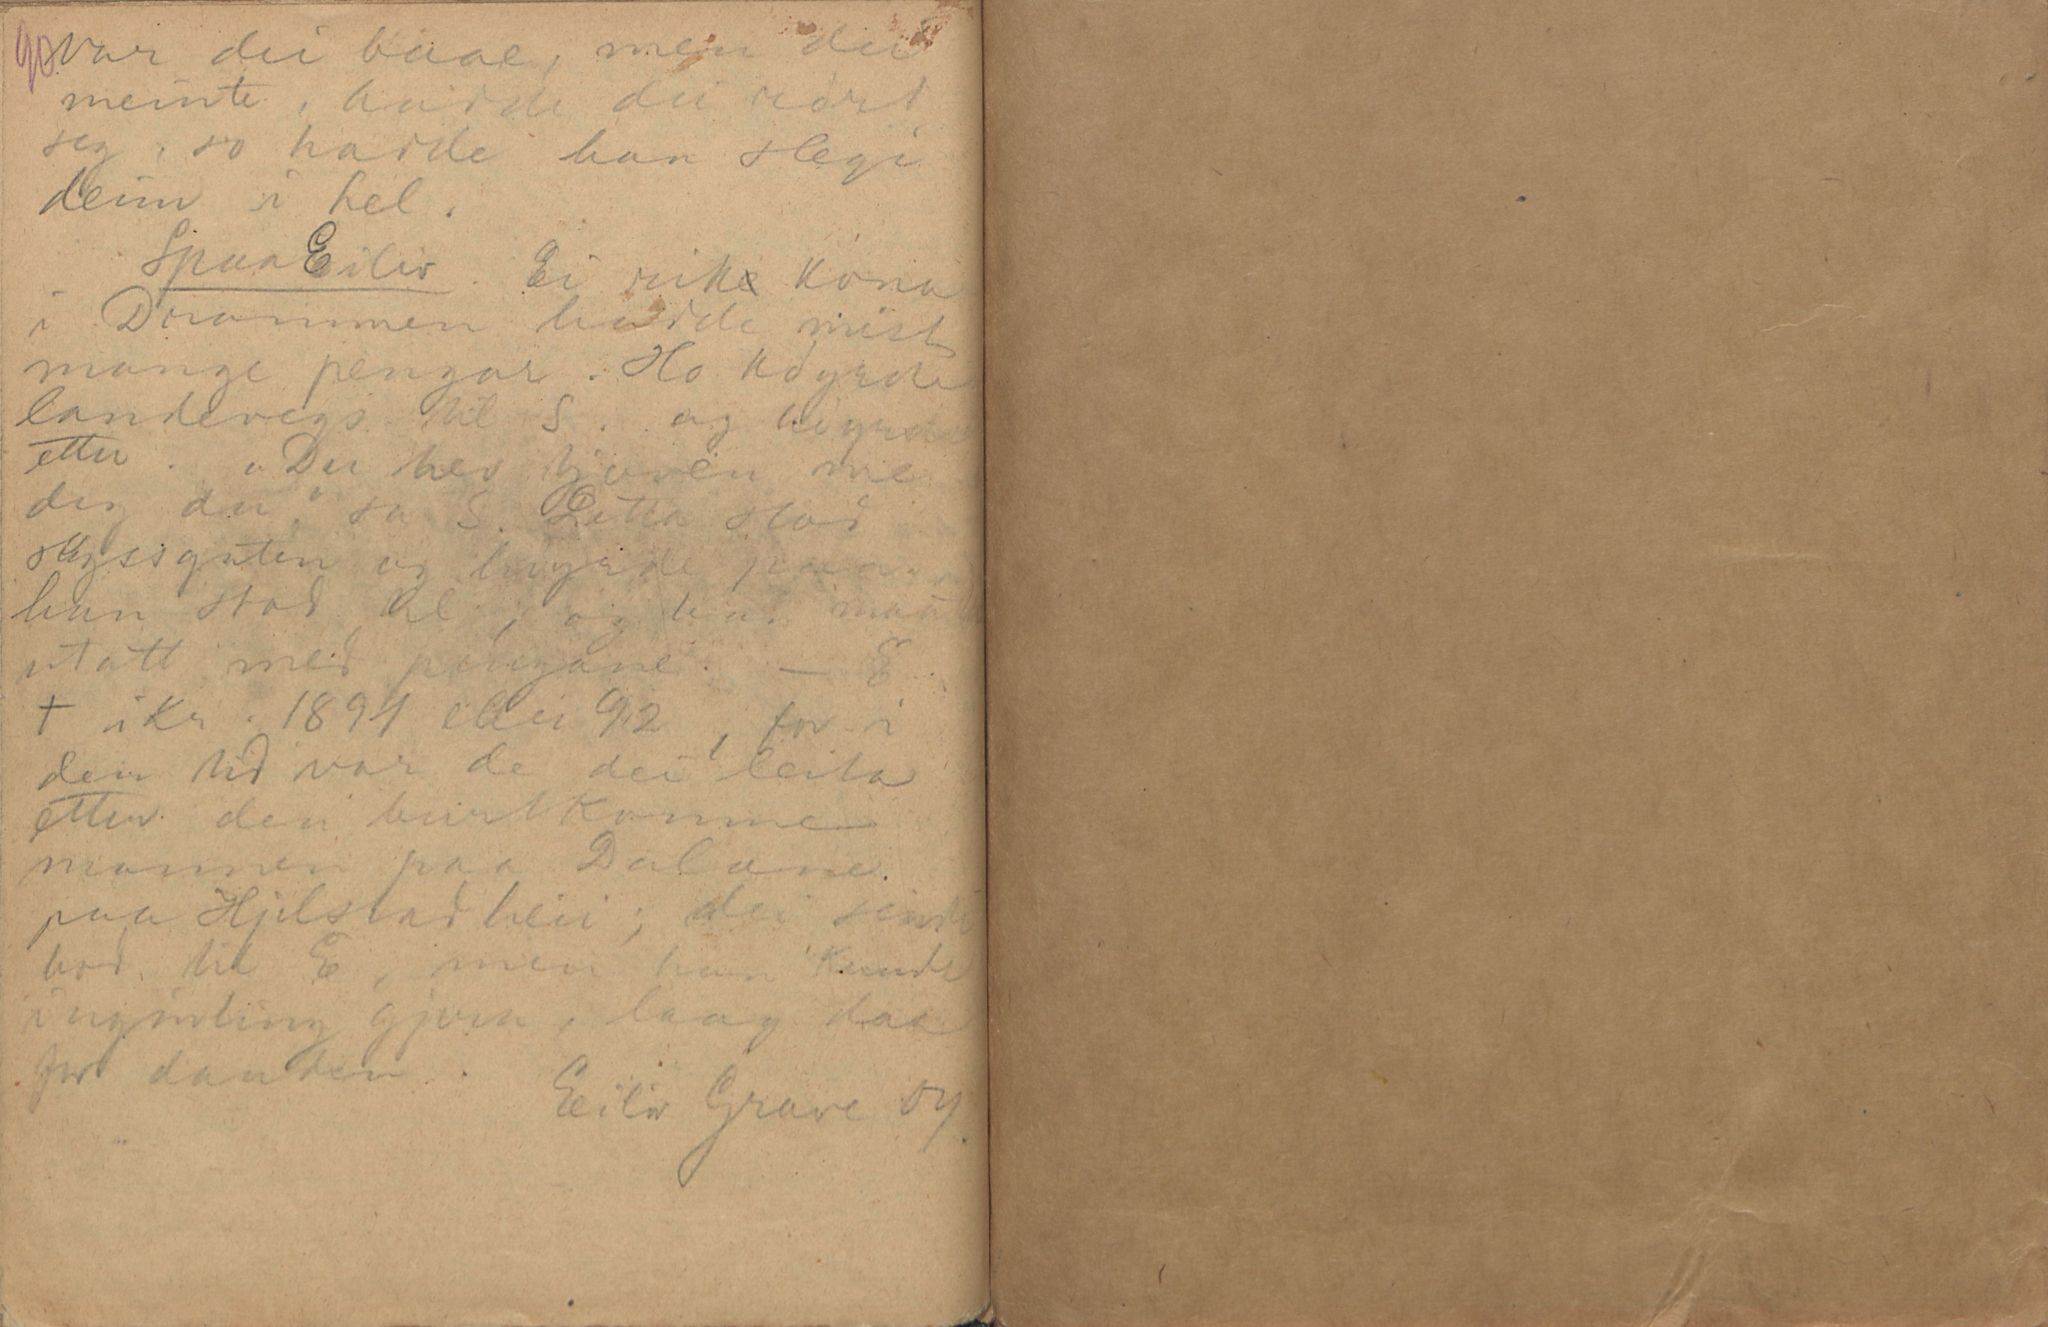 90.
var dei baae, men dei
meinte, hadde dei rørt
seg, so hadde han slegi
deim i hel.
SpaaEiliv. Ei rik kona
i Drammen hadde mist
mange pengar. Ho køyrde
landevegs til S. og høyrde
etter. "Du hev tjuven me
deg du," sa S. Detta stod
skyssguten og høyrde paa
han stod til, og han maatte
utatt med pengane. — E.
† i Kr. 1891 eller 92, for i
den tid var de dei leita
etter den burtkomne
mannen paa Dalane
paa Hjelstadheii; dei sende
bod til E, men han kunde
ingenting gjera, laag daa
for dauden.
Eiliv Grave 04.